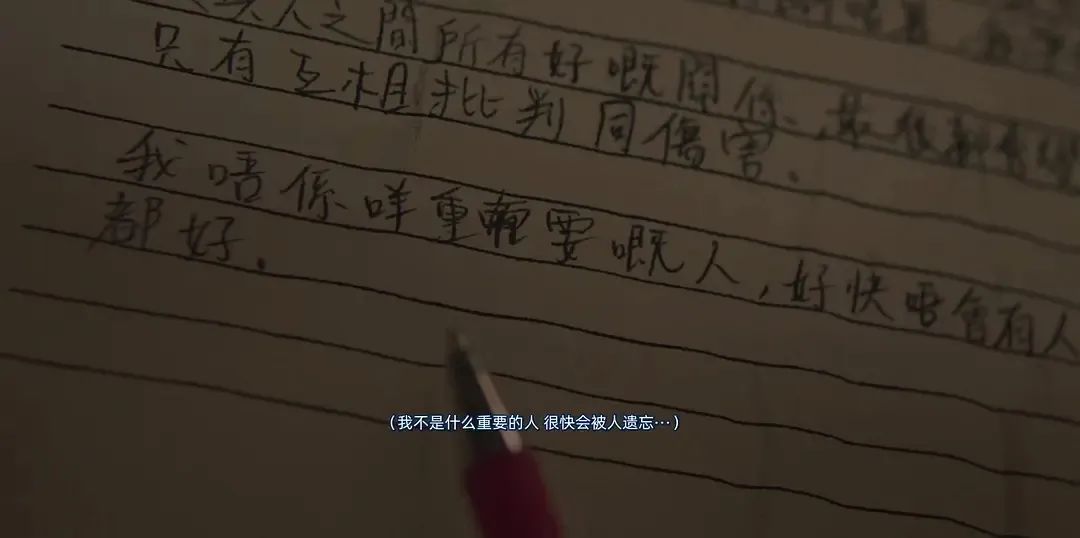 人之間所有好嘅關係、最後都會變
只有互相批判同傷害.
我唔係咩重要嘅人,好快唔會有人
都好.
(我不是什么重要的人 很快会被人遗忘…)